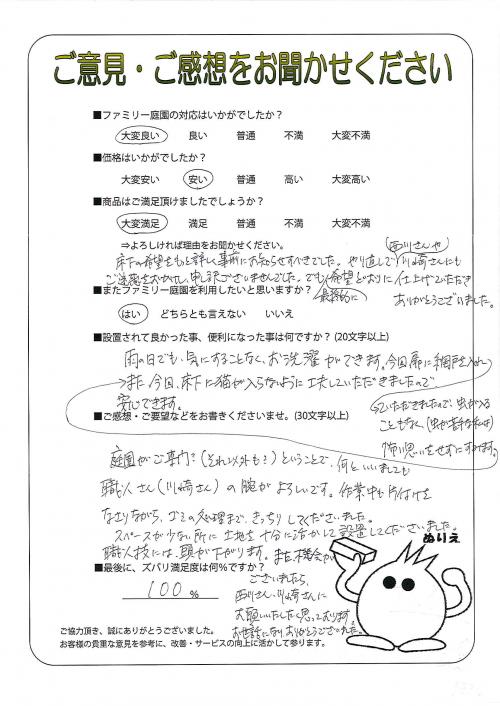 ご意見・ご感想をお聞かせください
■ファミリー庭園の対応はいかがでしたか？
大変良い 良い 普通 不満 大変不満
■価格はいかがでしたか？
大変安い 安い 普通 高い 大変高い
■商品はご満足頂けましたでしょうか？
大変満足 満足 普通 不満 大変不満
⇒よろしければ理由をお聞かせください。
西川さんや
床下の希望をもっと詳しく事前にお知らせすべきでした。やり直しで川崎さんにも
ご迷惑をおかけし、申し訳ございませんでした。でも、希望どおりに仕上げていただき
最終的に
ありがとうございました。
■またファミリー庭園を利用したいと思いますか？
はい どちらとも言えない いいえ
■設置されて良かった事、便利になった事は何ですか？(20文字以上)
雨の日でも、気にすることなく、お洗濯ができます。今回扉に網戸を入れ
→また今回、床下に猫が入らないように工夫していただきましたので
安心できます。
ていただきましたので、虫が入る
こともなく、(虫が苦手な私は)
怖い思いをせずにすみます。
■ご感想・ご要望などをお書きくださいませ。(30文字以上)
庭園がご専門？(それ以外も？)ということで、何といいましても
職人さん(川崎さん)の腕がよろしいです。作業中も片付けを
なさりながら、ゴミの処理まで、きっちりしてくださいました。
スペースが少ない所に土地を十分に活かして設置してくださいました。
職人技には、頭が下がります。また機会が
ございましたら、
西川さん、川崎さんに
お願いいたしたく思っております。
お世話になりありがとうございました。
■最後に、ズバリ満足度は何%ですか？
100 %
ぬりえ
ご協力頂き、誠にありがとうございました。
お客様の貴重な意見を参考に、改善・サービスの向上に活かして参ります。